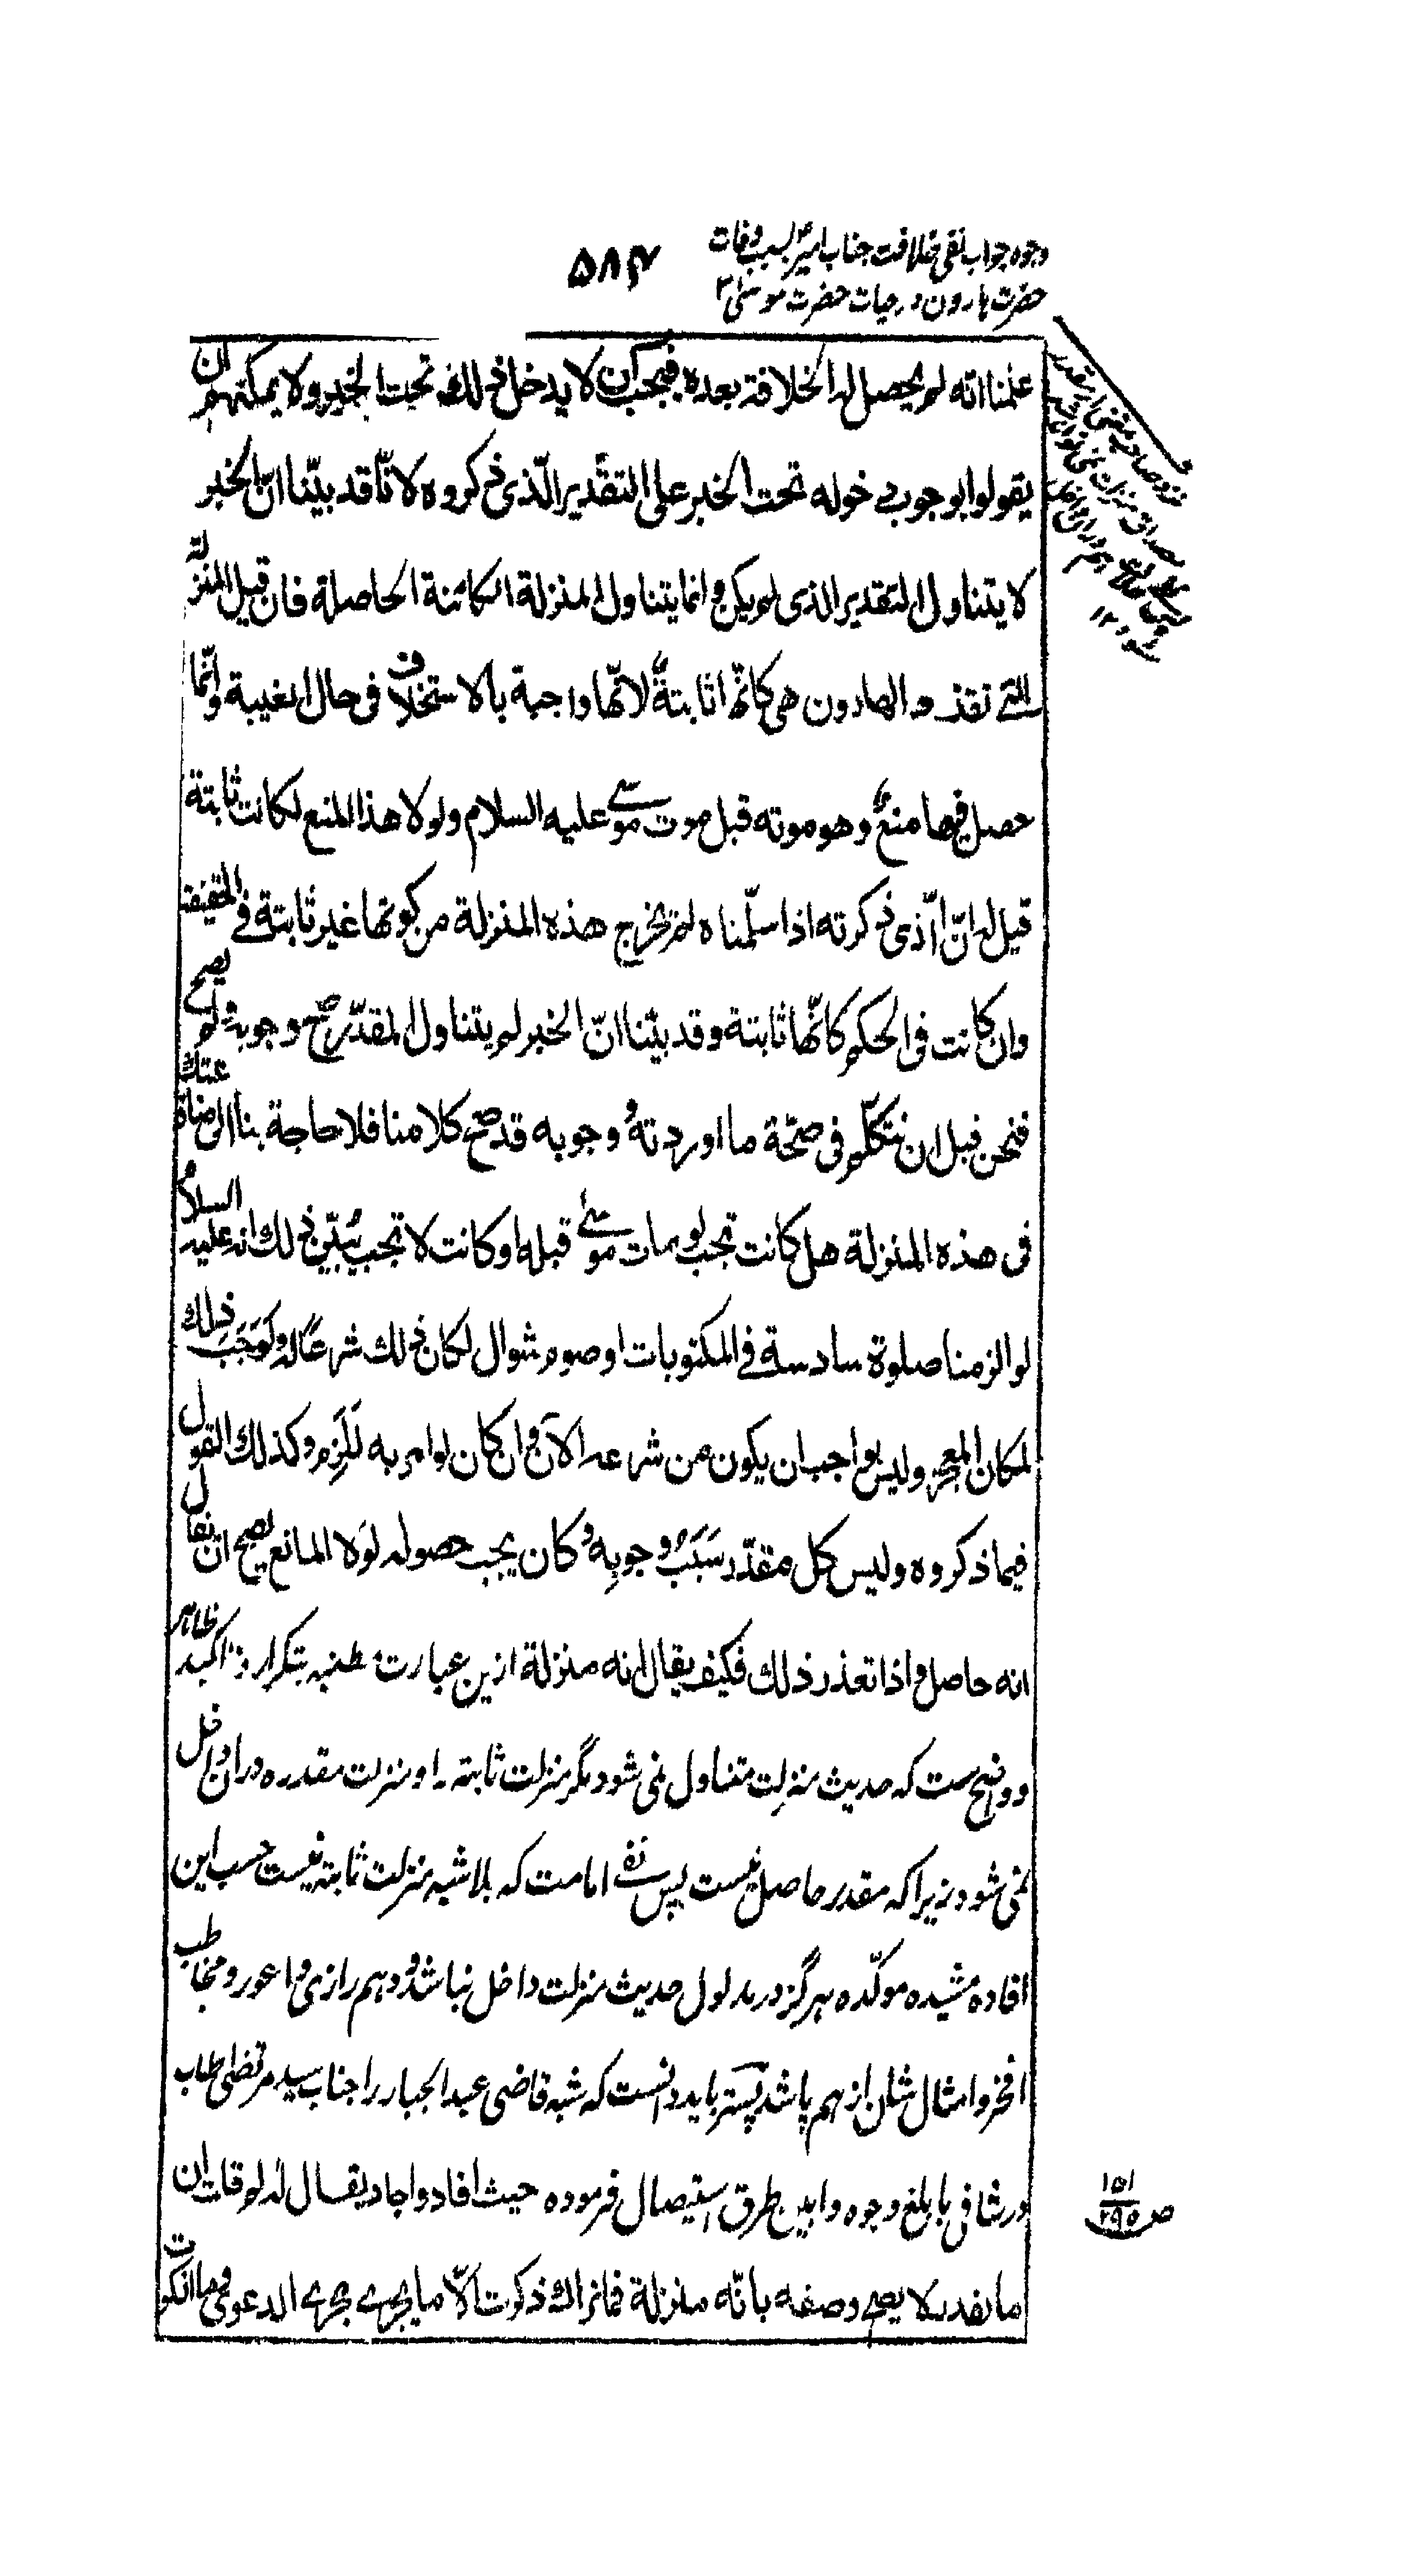 وجوه جواب نفی خلافت جناب امیرؑ بسبب وفات
۵۸۴
حضرت هارون در حیات حضرت موسیٰؑ
علمنا انه لم یحصل له الخلافة بعده فیجب ان لا یدخل ذلک تحت الخبر ولا یمکنهم ان
یقولوا بوجوب دخوله تحت الخبر علی التقدیر الّذی ذکروه لانّا قد بیّنا انّ الخبر
لا یتناول التقدیر الذی لم یکن وانما یتناول المنزلة الکائنة الحاصلة فان قیل المنزلة
التی تقدر لهارون هی کانّها ثابتةٌ لانّها واجبة بالاستخلاف فی حال الغیبة وانّما
حصل فیها منعٌ وهو موته قبل موت موسی علیه السلام ولولا هذا المنع لکانت ثابتة
قیل له انّ الّذی ذکرته اذا سلّمناه لم یخرج هذه المنزلة من کونها غیر ثابتة فی الحقیقة
وان کانت فی الحکم کانّها ثابتة وقد بیّنا انّ الخبر لم یتناول المقدّر صحّ وجوبه او لم یصح
فنحن قبل ان نتکلّم فی صحّة ما اوردتهُ وجوبه قد صحّ کلامنا فلا حاجة بنا الی مضایقتک
فی هذه المنزلة هل کانت تجب لو مات موسیٰ قبله او کانت لا تجب یُبیّن ذلک انه علیه السلام
لو الزمنا صلوة سادسة فی المکتوبات او صوم شوال لکان ذلک شرعًا له ولَوَجَبَ ذلک
لمکان المعجز ولیس بواجب ان یکون من شرعه الآن وان کان لو امر به لَلَزِم وکذلک القول
فیما ذکروه ولیس کل مقدّر سَبَبُ وجوبِه وکان یجب حصوله لولا المانع یصح ان یقال
انه حاصل واذا تعذر ذلک فکیف یقال انه منزلة ازین عبارت مطنبه بتکرار و تاکید ظاهر
و واضح ست که حدیث منزلت متناول نمی شود مگر منزلت ثابته را و منزلت مقدره در ان داخل
نمی شود زیرا که مقدر حاصل نیست پس نفی امامت که بلا شبه منزلت ثابته نیست حسب این
افاده مشیده موکّده هرگز در مدلول حدیث منزلت داخل نباشد و وهم رازی و اعور و مخاطب
افخر و امثال شان از هم پاشد پستر باید دانست که شبه قاضی عبد الجبار را جناب سید مرتضی طاب
در شافی بابلغ وجوه و ابین طرق استیصال فرموده حیث افاد واجاد یقال له لم قلت ان
ما یقدر لا یصح وصفه بانّه منزلة فما نراک ذکرت الّا ما یجری مجری الدعوی وما انکرت
ص ۱۵۱
۲۹۵